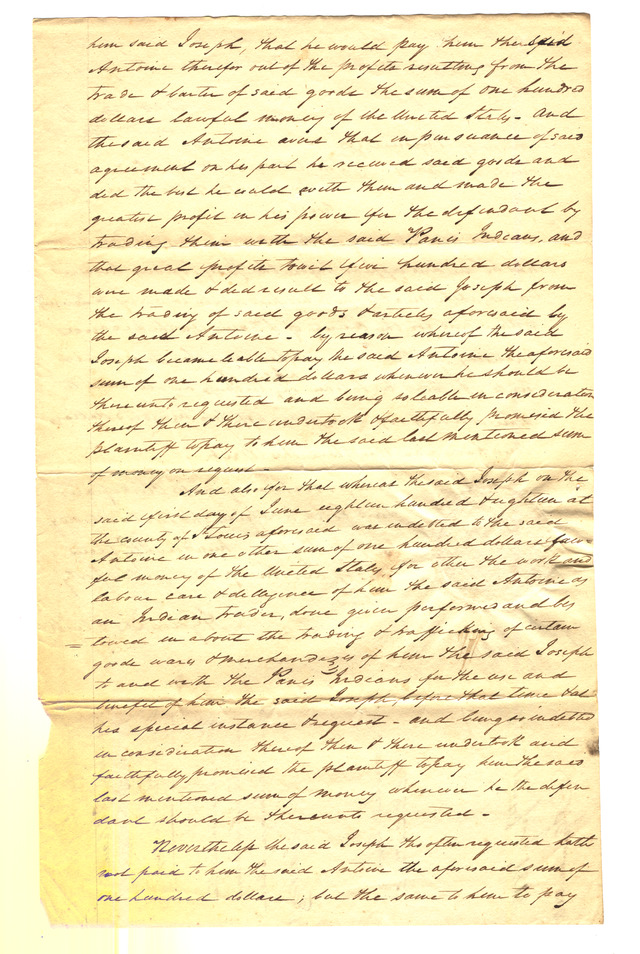 him said Joseph, that he would pay him the said
Antoine therefor out of the profits resulting from the
trade & barter of said goods the sum of one hundred
dollars lawful money of the United States - And
the said Antoine avers that in pursuance of said
agreement on his part he received said goods and
did the best he could with them and made the
greatest profit in his power for the defendant by
trading them with the said Panis Indians, and
that great profits towit five hundred dollars
were made & did result to the said Joseph from
the trading of said goods & articles aforesaid by
the said Antoine - by reason whereof the said
Joseph became liable to pay the said Antoine the aforesaid
sum of one hundred dollars whenever he should be
thereunto requested and being so liable in consideration
thereof then & there undertook & faithfully promised the
plaintiff to pay to him the said last mentioned sum
of money on request -
And also for that whereas the said Joseph on the
said first day of June eighteen hundred & eighteen at
the county of St Louis aforesaid was indebted to the said
Antoine in one other sum of one hundred dollars law-
ful money of the United States for other the work and
labour care & dilligence of him the said Antoine as
an Indian trader, done given performed and bes
towed in about the trading & trafficking of certain
goods wares & merchandizes of him the said Joseph
to and with the Panis Indians for the use and
benefit of him the said Joseph, before that time & at
his special instance & request - and being so indebted
in consideration thereof then & there undertook and
faithfully promised the plaintiff to pay him the said
last mentioned sum of money whenever he the defen
dant should be thereunto requested -
Nevertheless the said Joseph tho often requested hath
not paid to him the said Antoine the aforesaid sum of
one hundred dollars; but the same to him to pay